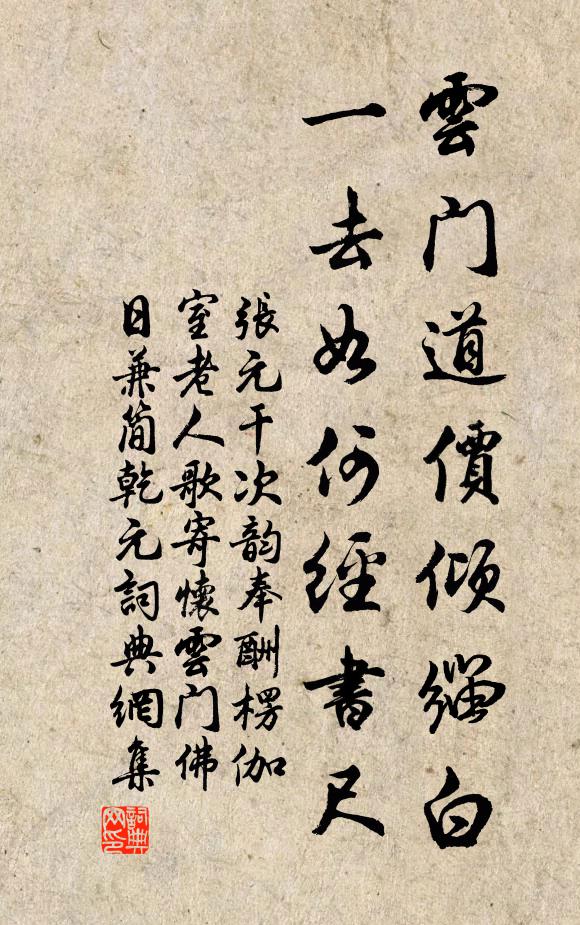 雲门道價傾緇白
一去如何經書尺
張元干次韵奉酬楞伽
室老人歌寄懷雲门佛
日兼简乾元詞典網集
詞典网印